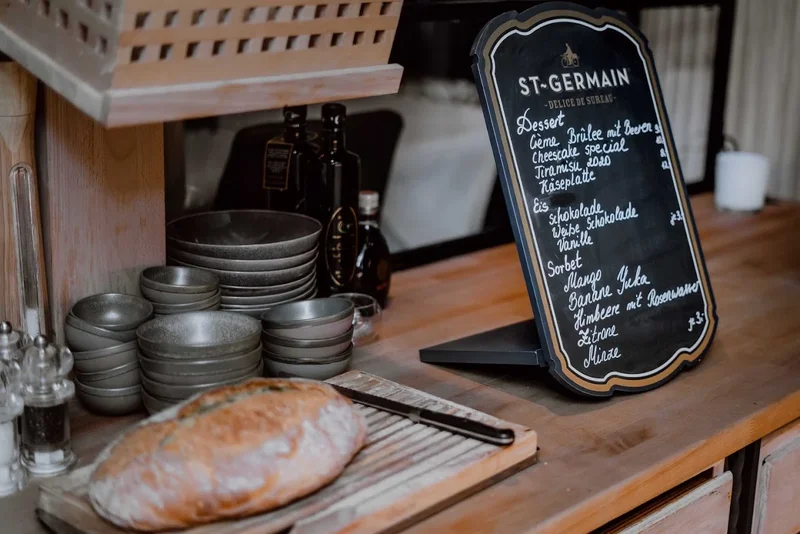 ST~GERMAIN
-DELICE DE SUREAU-
Dessert
Crème Brûlee mit Beeren
Cheescake special
Tiramisu 2020
Käseplatte
Eis
Schokolade
Weiße Schokolade je 3.-
Vanille
Sorbet
Mango
Banane Yuka
Himbeere mit Rosenwasser
Zitrone je 3.-
Minze